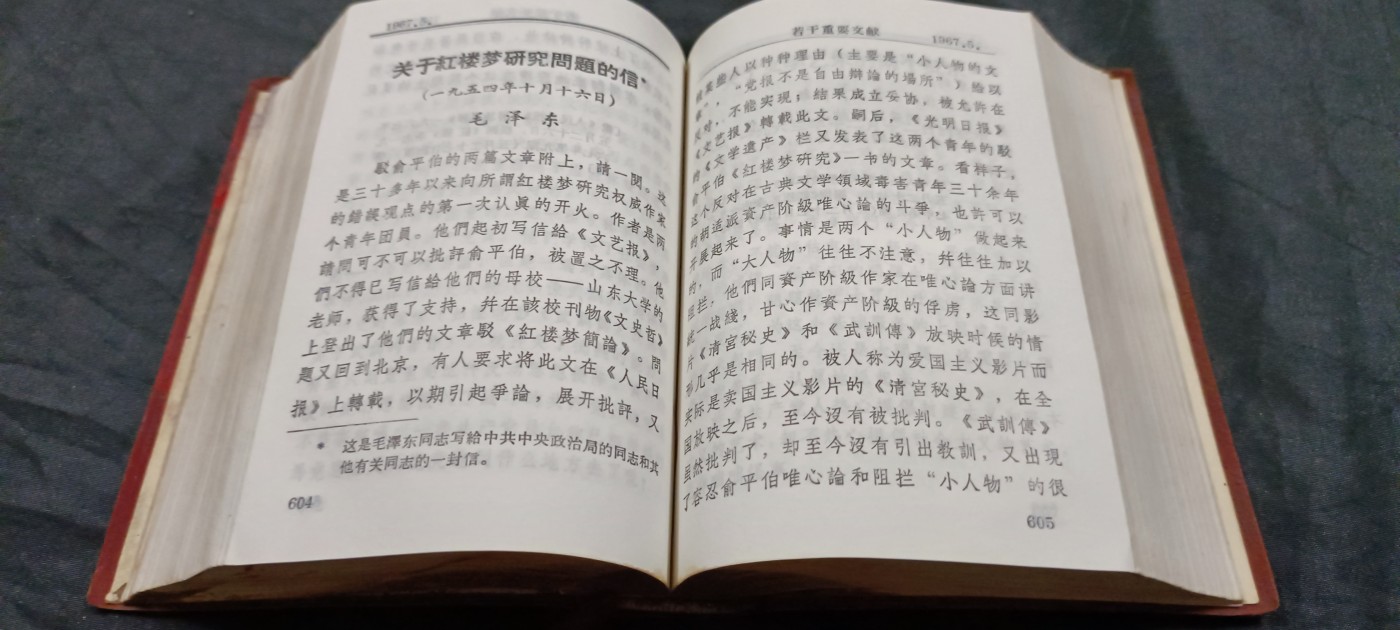 1967.5.
关于紅楼梦研究問題的信*
（一九五四年十月十六日）
毛泽东
駁俞平伯的两篇文章附上，請一閱。这
是三十多年以来向所謂紅楼梦研究权威作家
的錯誤观点的第一次认眞的开火。作者是两
个青年团員。他們起初写信給《文艺报》，
請問可不可以批評俞平伯，被置之不理。他
們不得已写信給他們的母校——山东大学的
老师，获得了支持，幷在該校刊物《文史哲》
上登出了他們的文章駁《紅楼梦簡論》。問
題又回到北京，有人要求将此文在《人民日
报》上轉載，以期引起爭論，展开批評，又
* 这是毛澤东同志写給中共中央政治局的同志和其
他有关同志的一封信。
604
若干重要文献
1967.5.
某些人以种种理由（主要是“小人物的文
章”，“党报不是自由辯論的場所”）給以
反对，不能实现；結果成立妥协，被允許在
《文艺报》轉載此文。嗣后，《光明日报》
的《文学遺产》栏又发表了这两个青年的駁
俞平伯《紅楼梦研究》一书的文章。看样子，
这个反对在古典文学領域毒害青年三十余年
的胡适派資产阶級唯心論的斗爭，也許可以
开展起来了。事情是两个“小人物”做起来
的，而“大人物”往往不注意，幷往往加以
阻拦，他們同資产阶級作家在唯心論方面讲
統一战綫，甘心作資产阶級的俘虏，这同影
片《清宮秘史》和《武訓傳》放映时候的情
形几乎是相同的。被人称为爱国主义影片而
实际是卖国主义影片的《清宮秘史》，在全
国放映之后，至今沒有被批判。《武訓傳》
虽然批判了，却至今沒有引出教訓，又出現
了容忍俞平伯唯心論和阻拦“小人物”的很
605